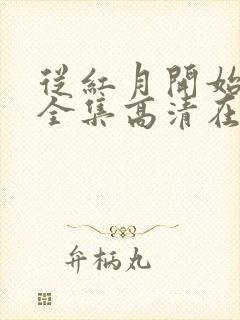 從紅月開始
全集高清在
弁柄丸